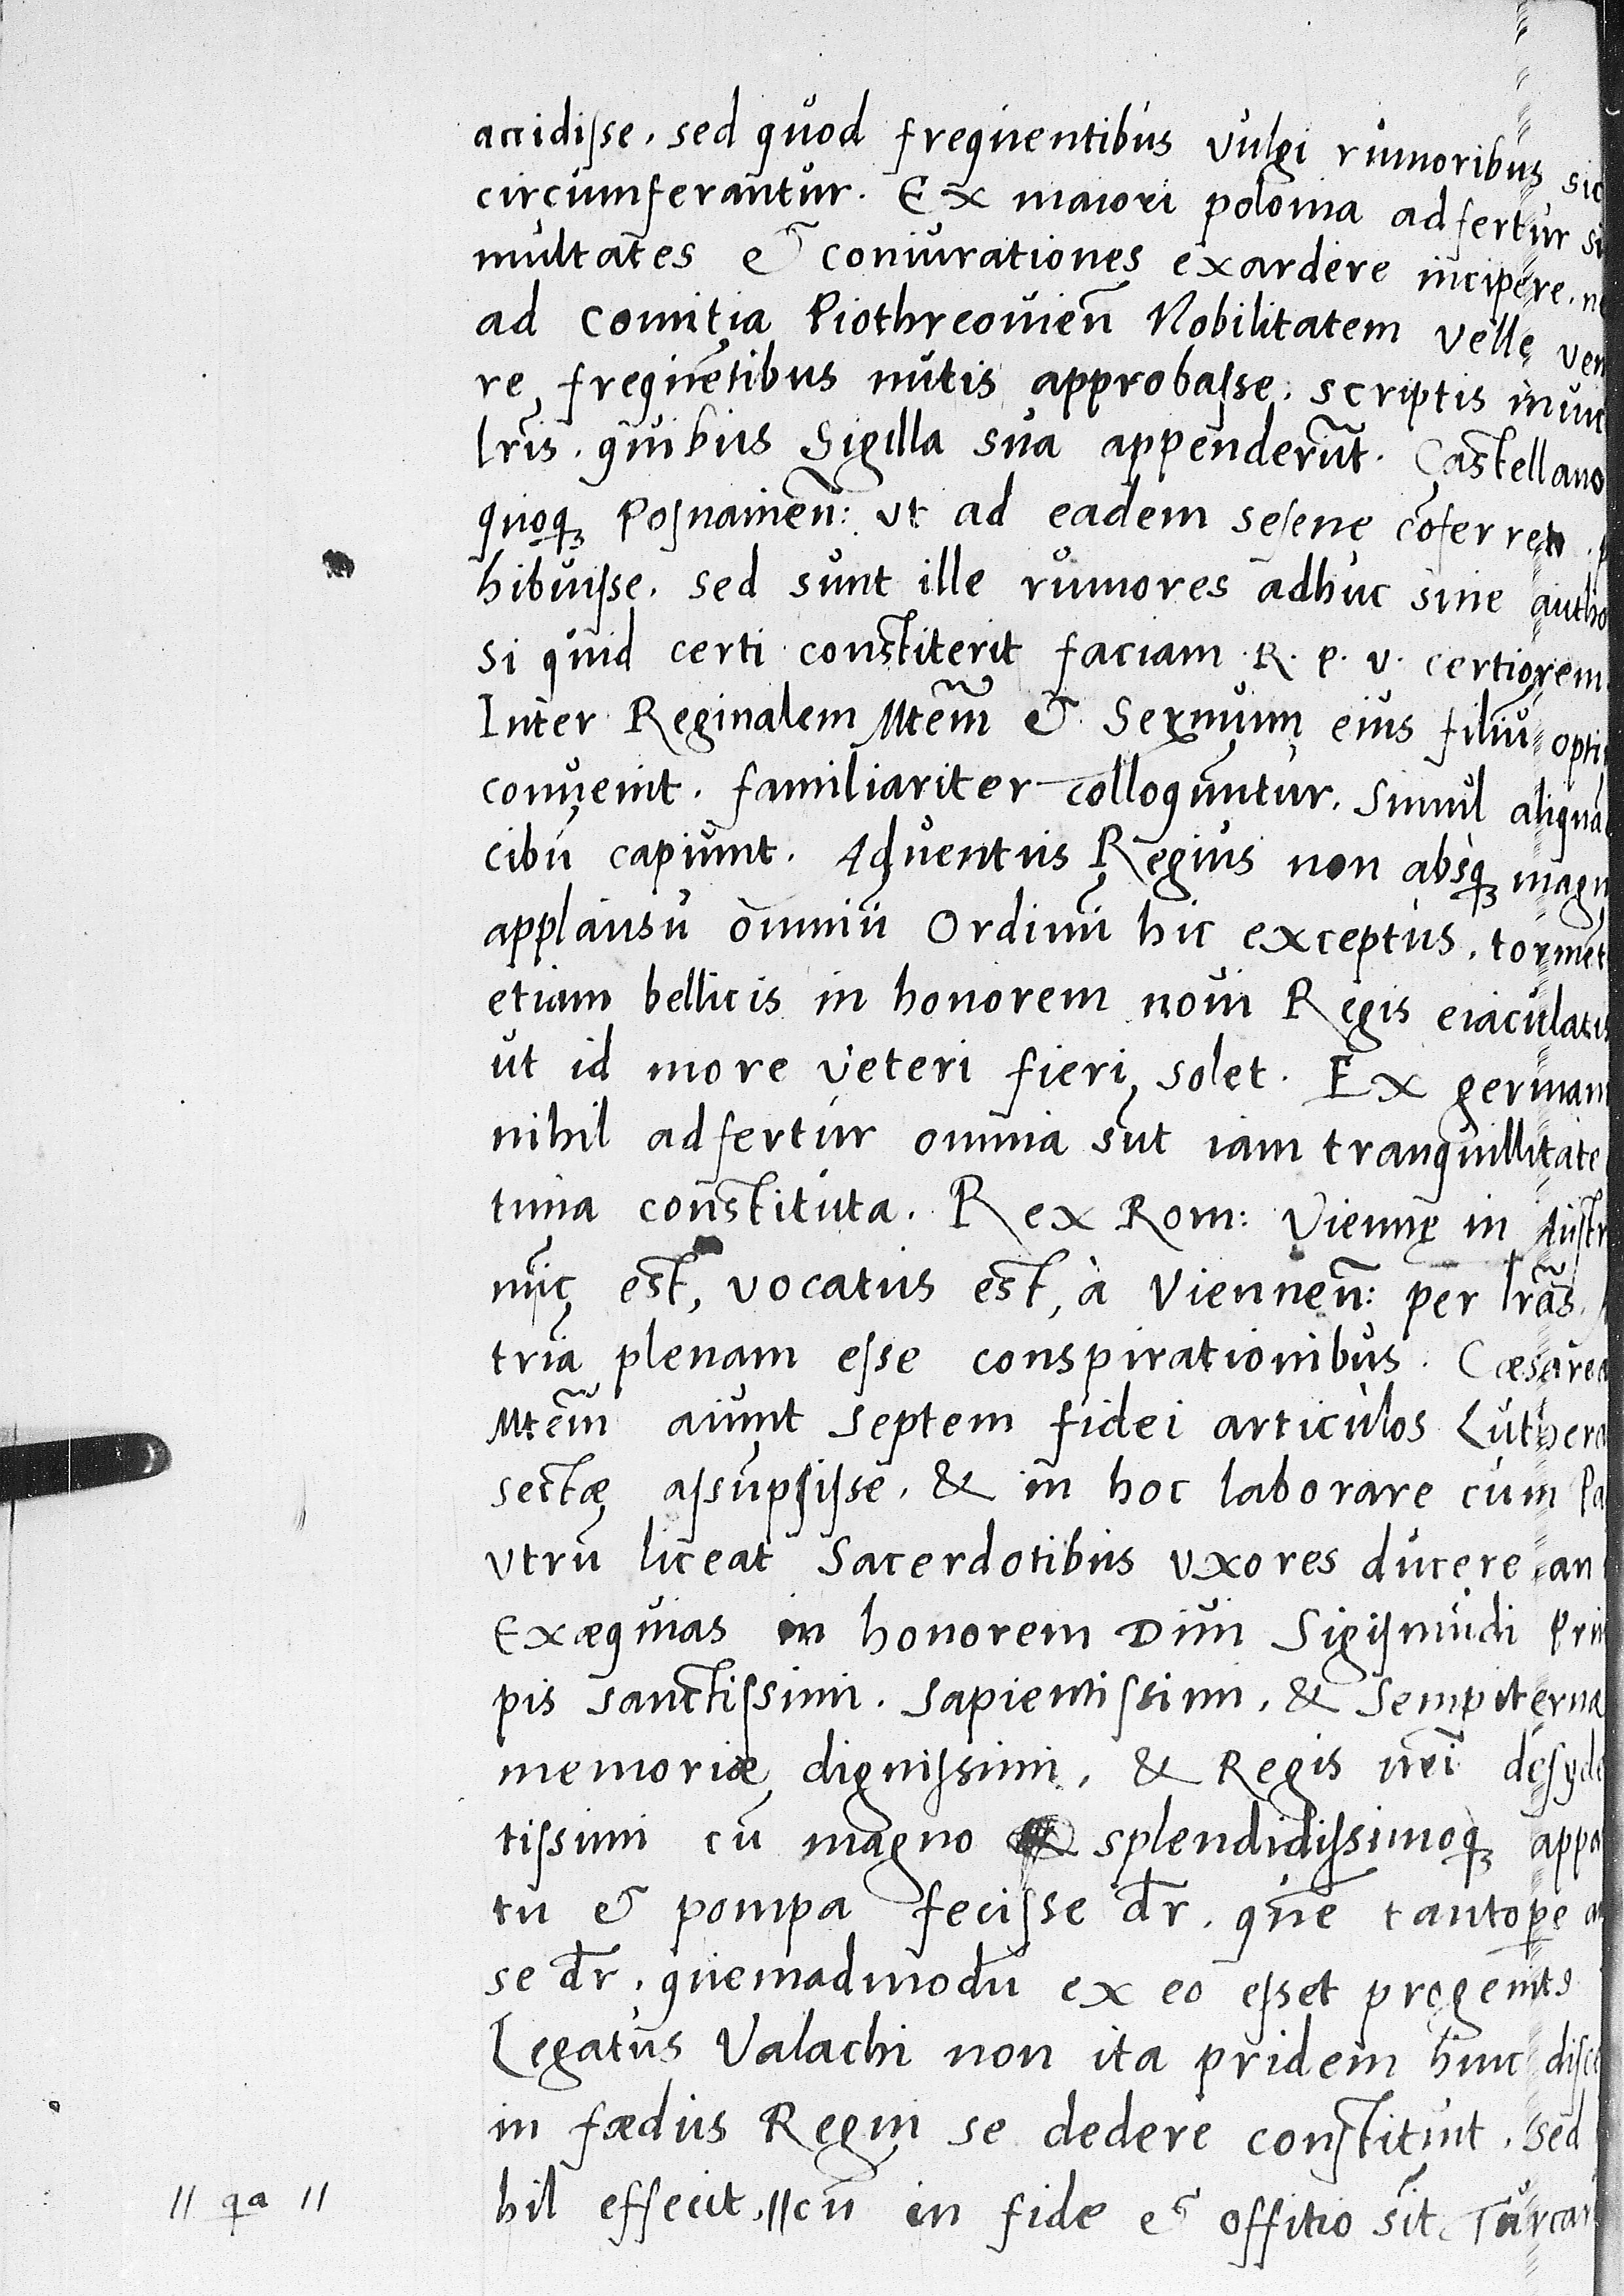 accidisse. sed quod frequentibus vulgi rumoribus sic
circumferantur. Ex maiori polonia adfertur si
multates et coniurationes exardere incipere. ne
ad comitia Piothreouien̄ Nobilitatem velle ven
re, frequētibus nutis approbasse. scriptis inuic
lr̄is. quibus Sigilla sua appenderūt. Castellano
quoqꝫ Posnainen̄: vt ad eadem sesene cōferret. p
hibuisse. sed sunt ille rumores adhuc sine autho
si quid certi constiterit faciam R. p. v. certiorem
Inter Reginalem Mtēm et Serm̄um eius filiū opti
conuenit. familiariter colloquuntur. simul aliquā
cibū capiunt. Aduentus Regius non absqꝫ magn
applausu omniū Ordinū hic exceptus. tormēt
etiam bellicis in honorem noui Regis eiaculatis
ut id more veteri fieri solet. Ex german
nihil adfertur omnia sūt iam tranquillitate
tuna constituta. Rex Rom: Viennę in Austr
nūc est, vocatus est, à Viennen̄: per lr̄as.
triā plenam esse conspirationibus. Cæsarea
Mtēm aiunt septem fidei articulos Luthera
sectæ assupsisse. & in hoc laborare cum Pa
vtrū liceat Sacerdotibus vxores ducere an
Exæquias in honorem Diui Sigismūdi Prin
pis sanctissimi. sapientissimi. & sempiternæ
memoriæ dignissimi. & Regis nr̄i desyde
tissimi cū magno splendidissimoqꝫ appa
tu et pompa fecisse dr̄. quē tantope a
se dr̄. quemadmodū ex eo esset progenitꝰ
Legatus Valachi non ita pridem hinc disce
in fœdus Regni se dedere constituit. sed
hil effecit. // cū in fide et offitio sit Turcar
// qa //